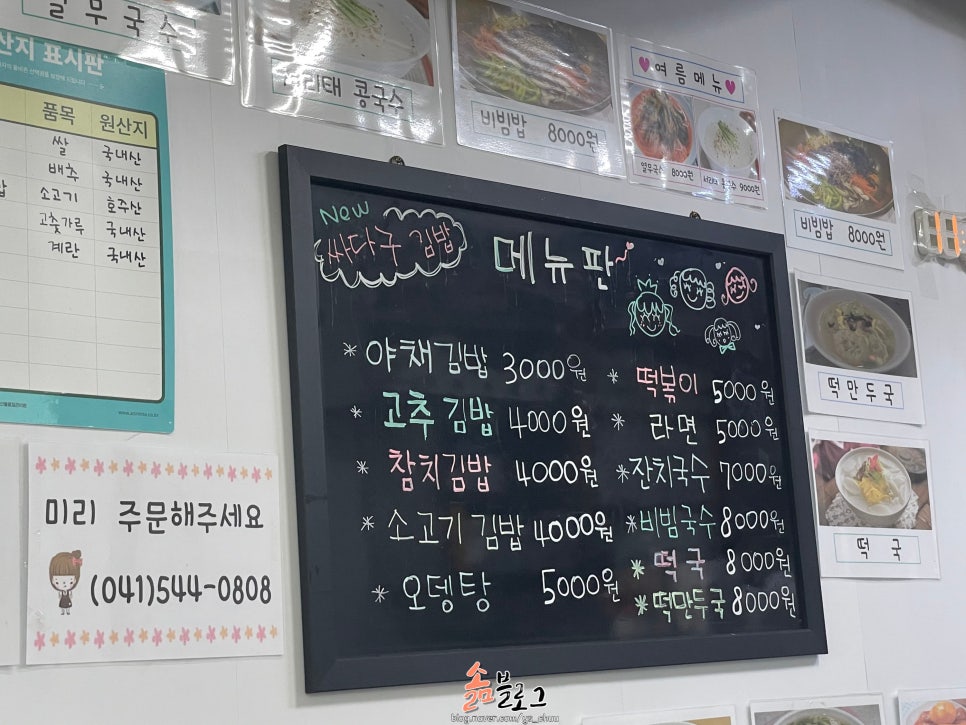 열무국수
서리태 콩국수
비빔밥 8000원
♥여름메뉴♥
열무국수 8000원
서리태 콩국수 9000원
비빔밥 8000원
떡만두국
떡 국
산지 표시판
품목 원산지
쌀 국내산
배추 국내산
소고기 호주산
고춧가루 국내산
계란 국내산
미리 주문해주세요
(041)544-0808
New
싸다구 김밥
메뉴판
* 야채김밥 3000원
* 고추김밥 4000원
* 참치김밥 4000원
* 소고기김밥 4000원
* 오뎅탕 5000원
* 떡볶이 5000원
* 라면 5000원
* 잔치국수 7000원
* 비빔국수 8000원
* 떡국 8000원
* 떡만두국 8000원
솖블로그
blog.naver.com/gz_chuu